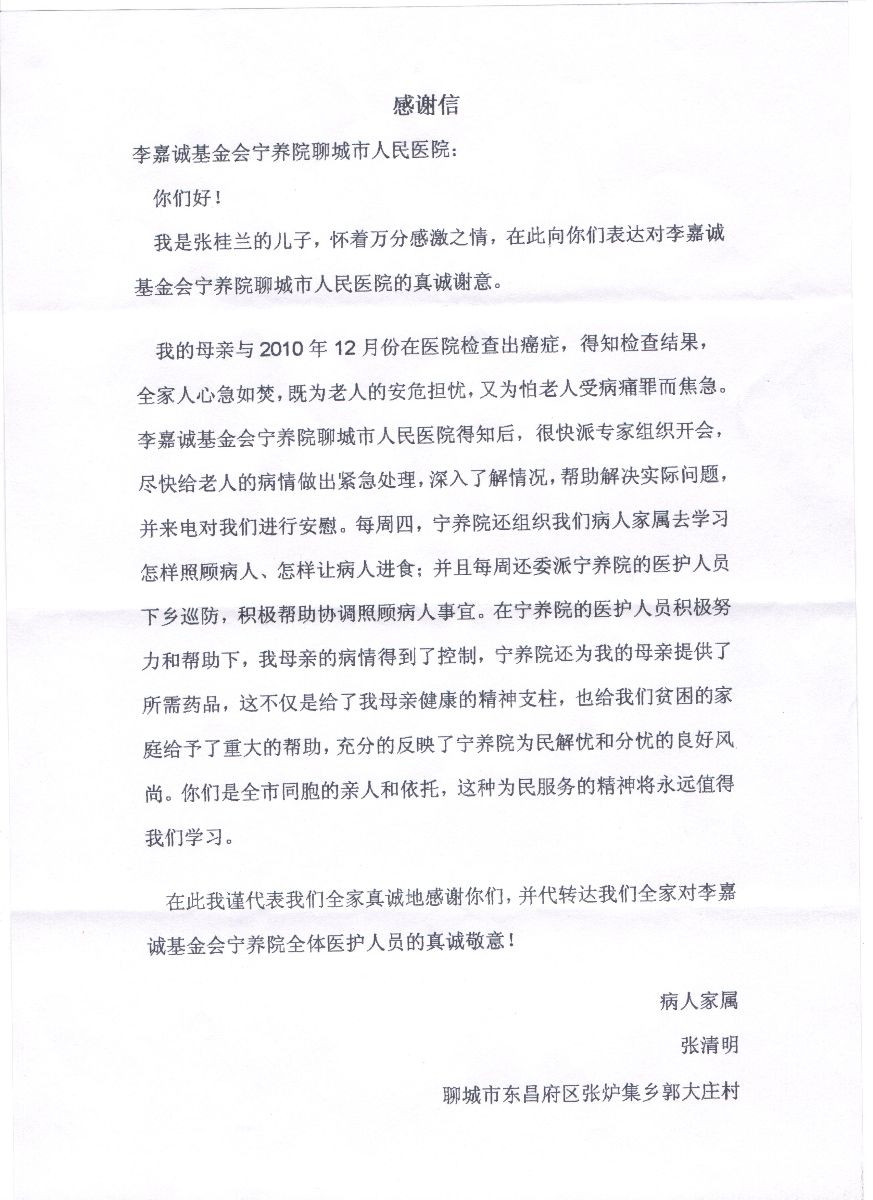 感谢信
李嘉诚基金会宁养院聊城市人民医院：
你们好！
我是张桂兰的儿子，怀着万分感激之情，在此向你们表达对李嘉诚
基金会宁养院聊城市人民医院的真诚谢意。
我的母亲与 2010 年 12 月份在医院检查出癌症，得知检查结果，
全家人心急如焚，既为老人的安危担忧，又为怕老人受病痛罪而焦急。
李嘉诚基金会宁养院聊城市人民医院得知后，很快派专家组织开会，
尽快给老人的病情做出紧急处理，深入了解情况，帮助解决实际问题，
并来电对我们进行安慰。每周四，宁养院还组织我们病人家属去学习
怎样照顾病人、怎样让病人进食；并且每周还委派宁养院的医护人员
下乡巡防，积极帮助协调照顾病人事宜。在宁养院的医护人员积极努
力和帮助下，我母亲的病情得到了控制，宁养院还为我的母亲提供了
所需药品，这不仅是给了我母亲健康的精神支柱，也给我们贫困的家
庭给予了重大的帮助，充分的反映了宁养院为民解忧和分忧的良好风
尚。你们是全市同胞的亲人和依托，这种为民服务的精神将永远值得
我们学习。
在此我谨代表我们全家真诚地感谢你们，并代转达我们全家对李嘉
诚基金会宁养院全体医护人员的真诚敬意！
病人家属
张清明
聊城市东昌府区张炉集乡郭大庄村